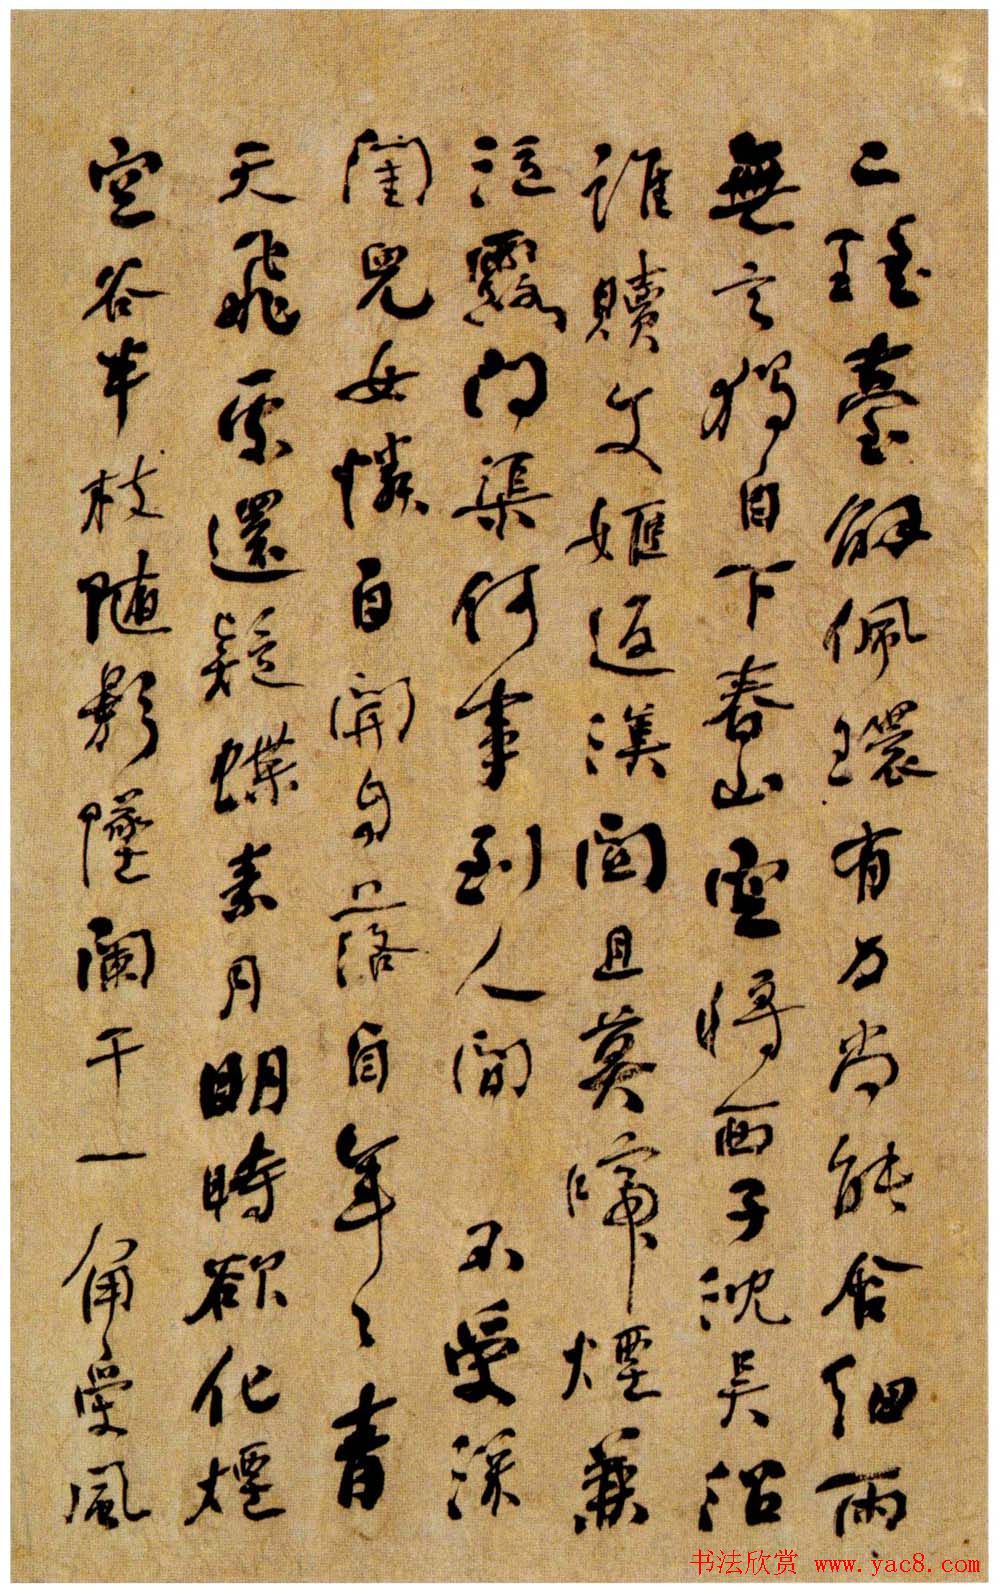 瑤臺解佩環有力尚能含細雨
無言獨自下春山空將西子沈吳沼
誰贖文姬返漢關且莫啼煙兼
泣露問渠何事到人間 不受深
閨兒女憐自開自落自年〻青
天飛處還疑蝶素月明時欲化煙
空谷半枝隨影墜闌干一角受風
书法欣赏 www.yac8.com